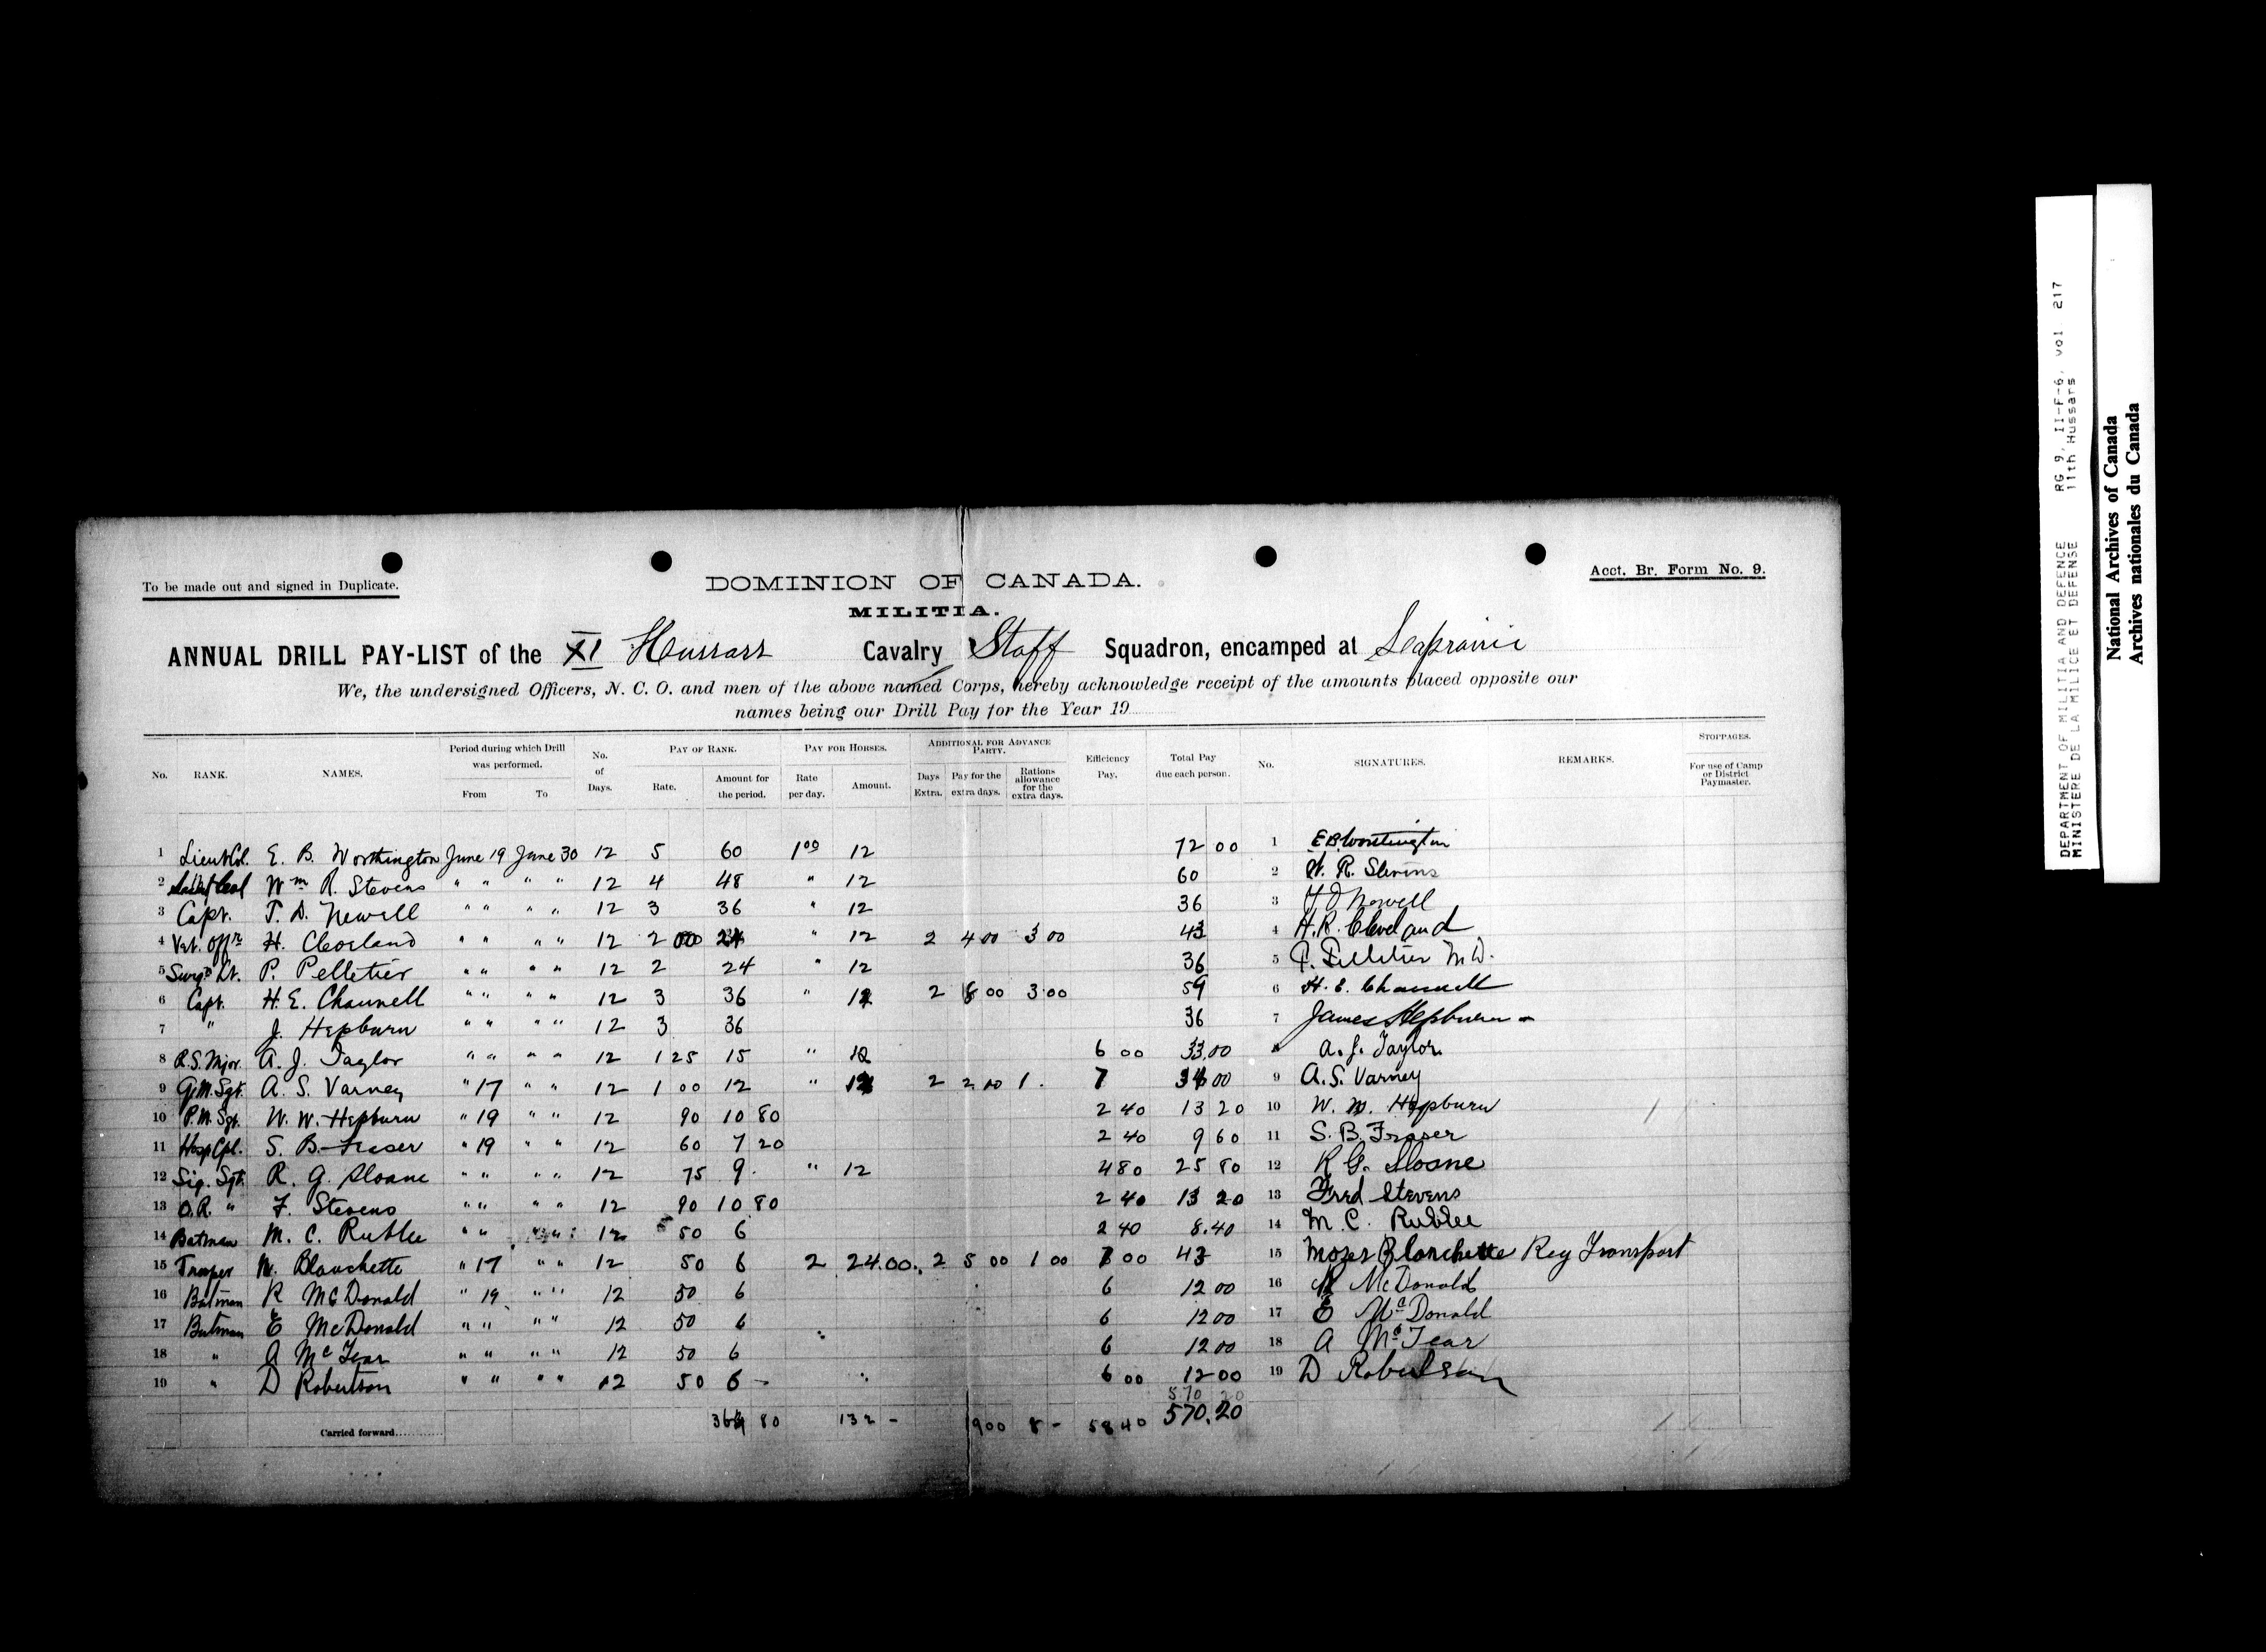 To be made out and signed in Duplicate.
DOMINION OF CANADA.
Acct. Br. Form No. 9.
MILITIA.
ANNUAL DRILL PAY-LIST of the XI Hussars Cavalry Staff Squadron, encamped at Laprairie
We, the undersigned Officers, N. C. O. and men of the above named Corps, hereby acknowledge receipt of the amounts placed opposite our
names being our Drill Pay for the Year 19
No. RANK. NAMES. Period during which Drill was performed. From To No. of Days. PAY OF RANK. Rate. Amount for the period. PAY FOR HORSES. Rate per day. Amount. ADDITIONAL FOR ADVANCE PARTY. Days Extra. Pay for the extra days. Rations allowance for the extra days. Efficiency Pay. Total Pay due each person. No. SIGNATURES. REMARKS. STOPPAGES. For use of Camp or District Paymaster.
1 Lieut Col. E. B. Worthington June 19 June 30 12 5 60 1 00 12 72 00 1 E B Worthington
2 Wm R. Stevens " " " " 12 4 48 " 12 60 2 W. R. Stevens
3 Capt. T. D. Newell " " " " 12 3 36 " 12 36 3 Newell
4 Vet. Offr H. Cleveland " " " " 12 2 00 24 " 12 2 4 00 3 00 43 4 H. R. Cleveland
5 Surgn Lt. P. Pelletier " " " " 12 2 24 " 12 36 5 P. Pelletier M D.
6 Capt. H. E. Channell " " " " 12 3 36 " 12 2 8 00 3 00 59 6 H. E. Channell
7 " J. Hepburn " " " " 12 3 36 36 7 James Hepburn
8 R.S. Major. A. J. Taylor " " " " 12 1 25 15 " 12 6 00 33.00 8 A. J. Taylor
9 Q.M. Sgt. A. S. Varney " 17 " " 12 1 00 12 " 12 2 2 00 1. 7 34 00 9 A. S. Varney
10 P.M. Sgt. W. W. Hepburn " 19 " " 12 90 10 80 2 40 13 20 10 W. W. Hepburn
11 Hosp Cpl. S. B. Fraser " 19 " " 12 60 7 20 2 40 9 60 11 S. B. Fraser
12 Sig. Sgt. R. G. Sloane " " " " 12 75 9. " 12 4 80 25 80 12 R G. Sloane
13 O.R. " F. Stevens " " " " 12 90 10 80 2 40 13 20 13 Fred Stevens
14 Batman M. C. Rublee " " " " 12 50 6 2 40 8.40 14 M. C. Rublee
15 Trooper M. Blanchette " 17 " " 12 50 6 2 24.00 2 5 00 1 00 7 00 43 15 Mozes Blanchette Reg Transport
16 Batman R McDonald " 19 " " 12 50 6 6 12 00 16 R McDonald
17 Batman E McDonald " " " " 12 50 6 6 12 00 17 E McDonald
18 " A McTear " " " " 12 50 6 6 12 00 18 A McTear
19 " D Robertson " " " " 12 50 6 - 6 00 12 00 19 D Robertson
570 20
Carried forward 80 132 - 1900 8 - 58 40 570.20
DEPARTMENT OF MILITIA AND DEFENCE RG 9, II-F-6, vol 217
MINISTERE DE LA MILICE ET DEFENSE 11th Hussars
National Archives of Canada
Archives nationales du Canada